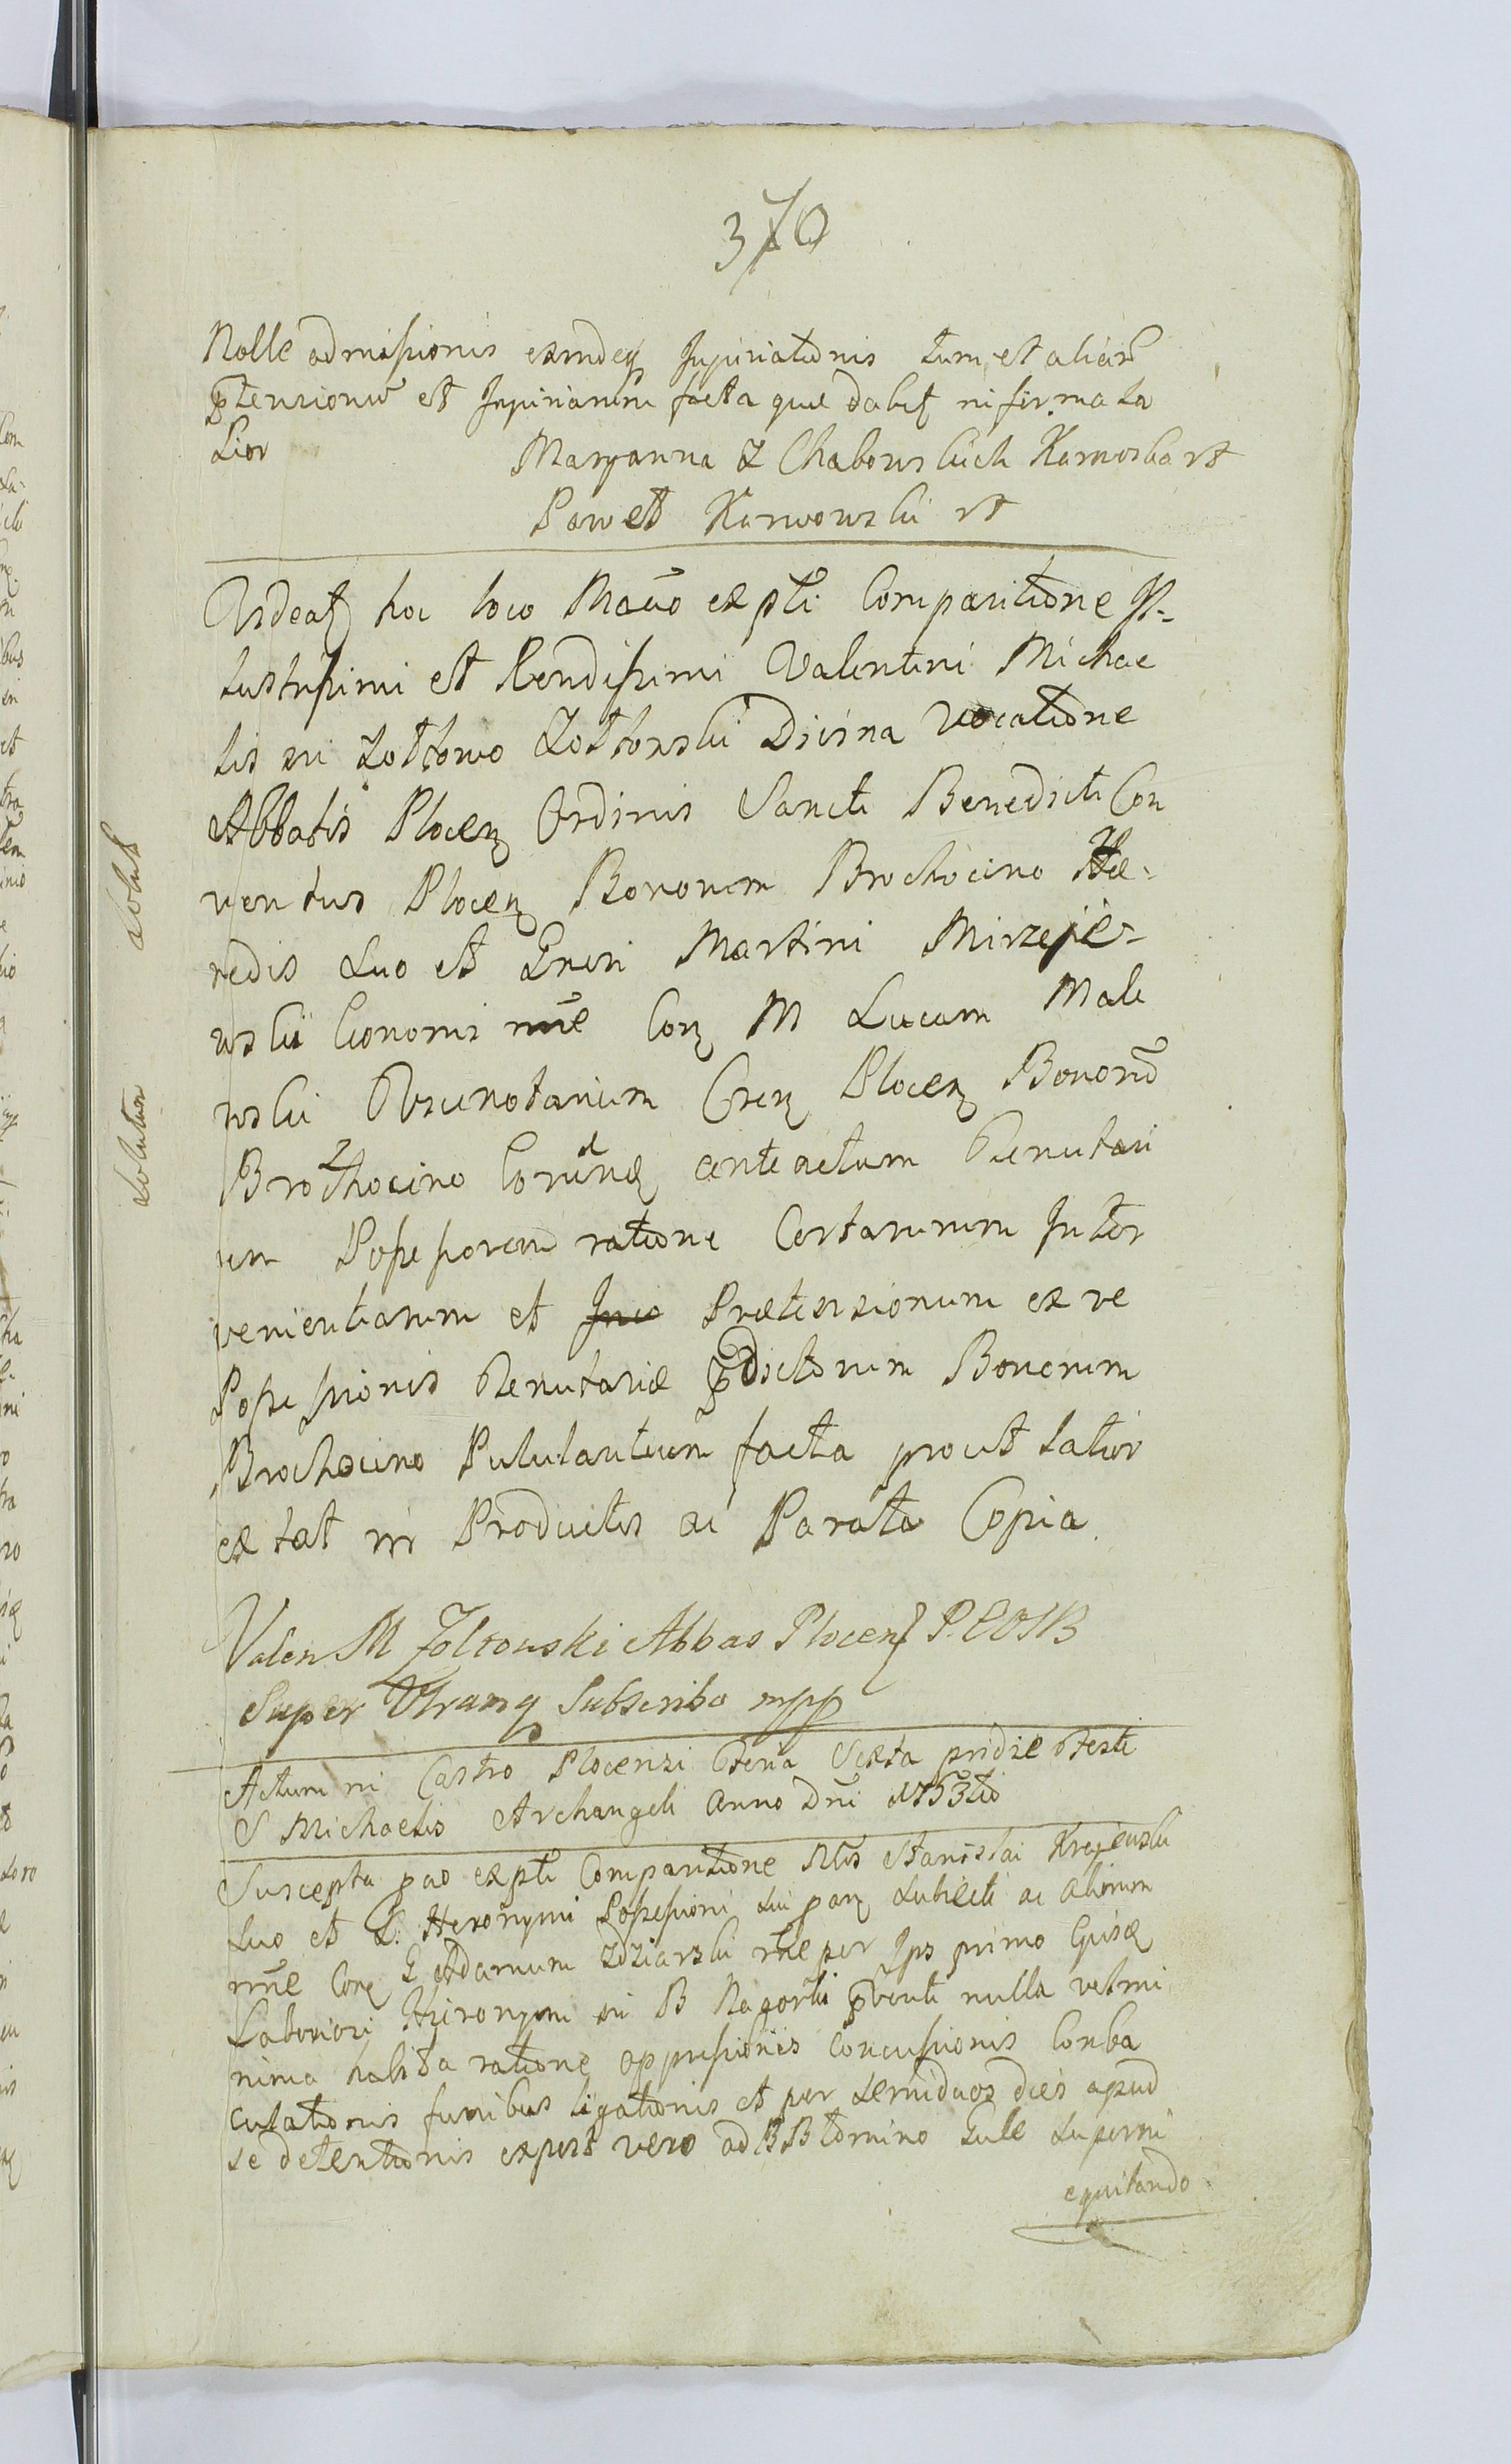 370
Nolle admissionis exindeq Injuriationis tum et aliarũ
ptensionũ et Injuriarum facta quae dabit in firma la
tior
Maryanna Z Chabowskich Karwoska rt
Paweł Karwowski rt
Ardeat hoc loco Mañio ex pti Comparitione Il-
lustrissimi et Rendissimi Valentini Michae
lis in Zołtowo Zołtowski Divina Vocatione
Abbatis Plocen Ordinis Sancti Benedicti Con
ventus Plocen Bonorum Brochocino Hae-
redis Suo et Gneri Martini Mirzeje-
wski Economi nñe Con M Lucam Male
wski Vicenotarium Cren Plocen Bonorũ
Brochocino anteactum Tenutari
um Possessorem ratione Certarum Inter
venientiarum et Praetensionum ex re
Possessionis Tenutariae pdictorum Bonorum
Brochocino Pululantium facta prout latior
extat in Productis ac Parata Copia.
Valen M Zoltowski Abbas Plocen P.C.OSB
Super Utramq Subscribo mpp
Actum in Castro Plocensi Feria Sexta pridie Festi
S Michaelis Archangeli Anno Dni 1753tio
Suscepta pao ex pti Comparitione Nlis Stanislai Krajewski
Suo et L. Hieronymi Possessioni sui par Subiecti ac aliorum
nñe Con G Adamum Zdziarski rñe per Ips primo Episae
Laboriosi Hieronymi in B Nagorki pventi nulla vel mi
nima habita ratione oppressionis Concussionis Conba
culationis funibus ligationis et per semiduos dies apud
se detentionis ex post vero ad B Btomino Sule superni
equitando
Solut
Solutum